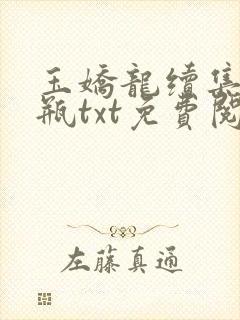 玉嬌龍續集
瓶txt免費閱
左藤真通